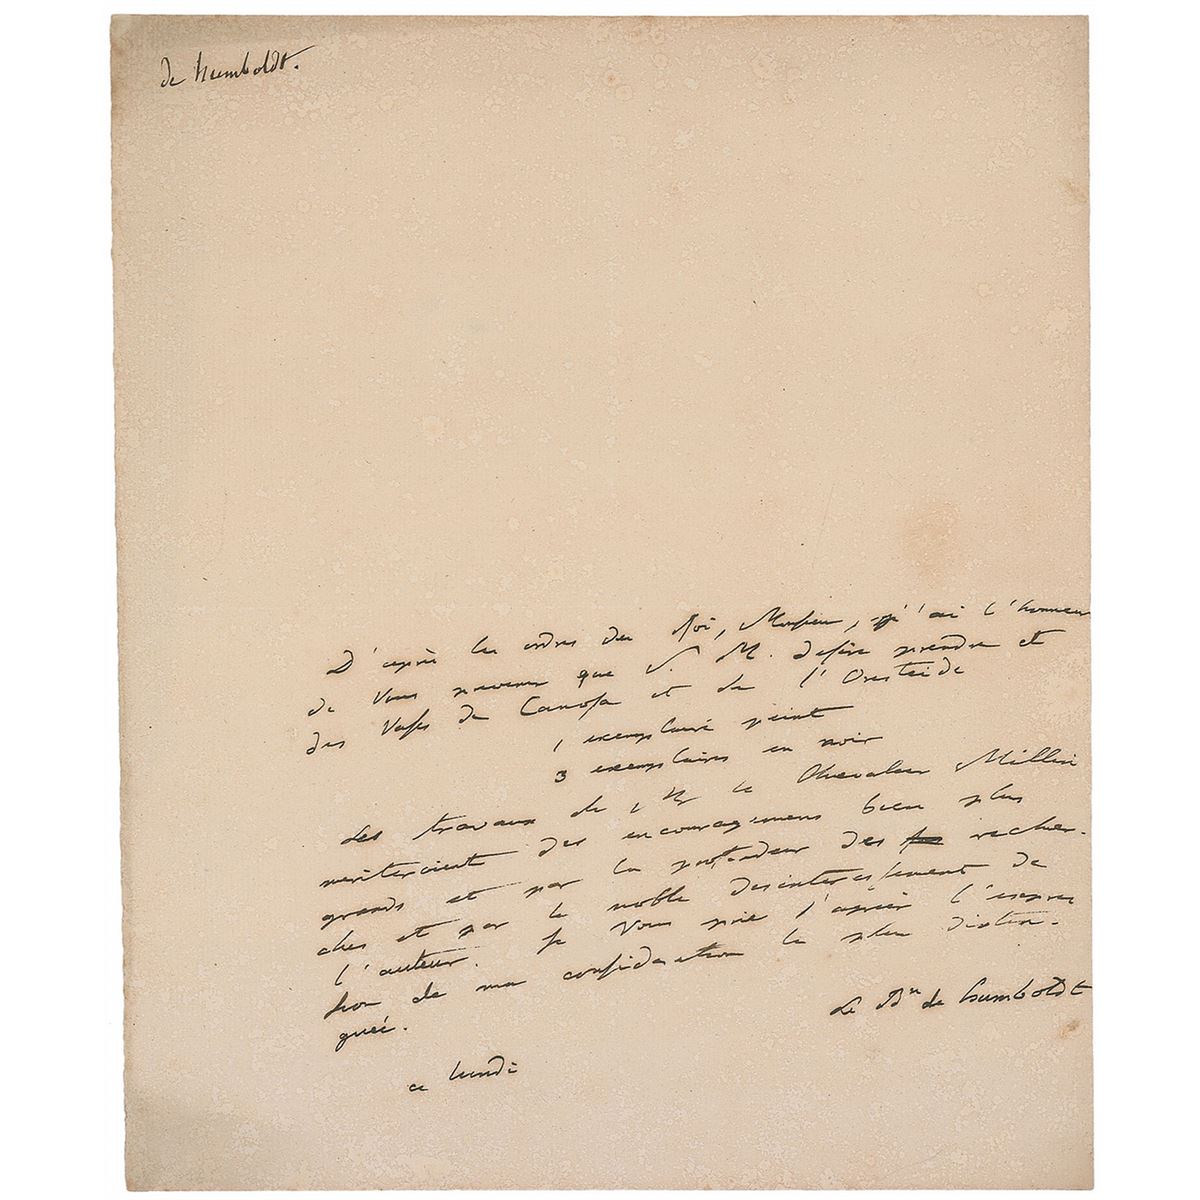 de humboldt.
D'après les ordres du Roi, Monsieur, j'ai l'honneur
de Vous prevenir que S. M. desire prendre et
des Vases de Canosa et de l'Oresteide
1 exemplaire peint
3 exemplaires en noir
Les travaux de Mr le Chevalier Millin
meriteroient des encouragemens bien plus
grands et par la profondeur des recher-
ches et par le noble desinteressement de
l'auteur. Je Vous prie d'agréer l'expres
sion de ma consideration la plus distin-
guée.
Le Bn de humboldt
ce lundi